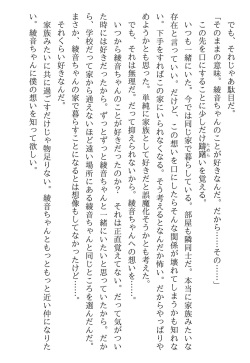 でも、それじゃあ駄目だ。
「そのままの意味。綾音ちゃんのことが好きなんだ。だから……その……」
この先を口にすることに少しだけ躊躇いを覚える。
いつも一緒にいた。今では同じ家で暮らしている。部屋も隣同士だ。本当に家族みたいな
存在と言っていい。だけど、この想いを口にしたらそんな関係が壊れてしまうかも知れな
い。下手をすればこの家にいられなくなる。そう考えるとなんだか怖い。だからやっぱりや
めようかとも思った。単純に家族として好きだと誤魔化そうかとも考えた。
でも、それは無理だ。だって抑えられないから。綾音ちゃんへの想いを……。
いつから綾音ちゃんのことが好きだったのか？　それは正直覚えてない。だって気がつい
た時には好きだったから。ずっとずっと綾音ちゃんと一緒にいたいと思っていたから。だか
ら、学校だって家から通えないほど遠い場所にある綾音ちゃんと同じところを選んだんだ。
まさか、綾音ちゃんの家で暮らすことになるとは想像もしてなかったけど……。
それくらい好きなんだ。
家族みたいに共に過ごすだけじゃ物足りない。綾音ちゃんともっともっと近い仲になりた
い。綾音ちゃんに僕の想いを知って欲しい。